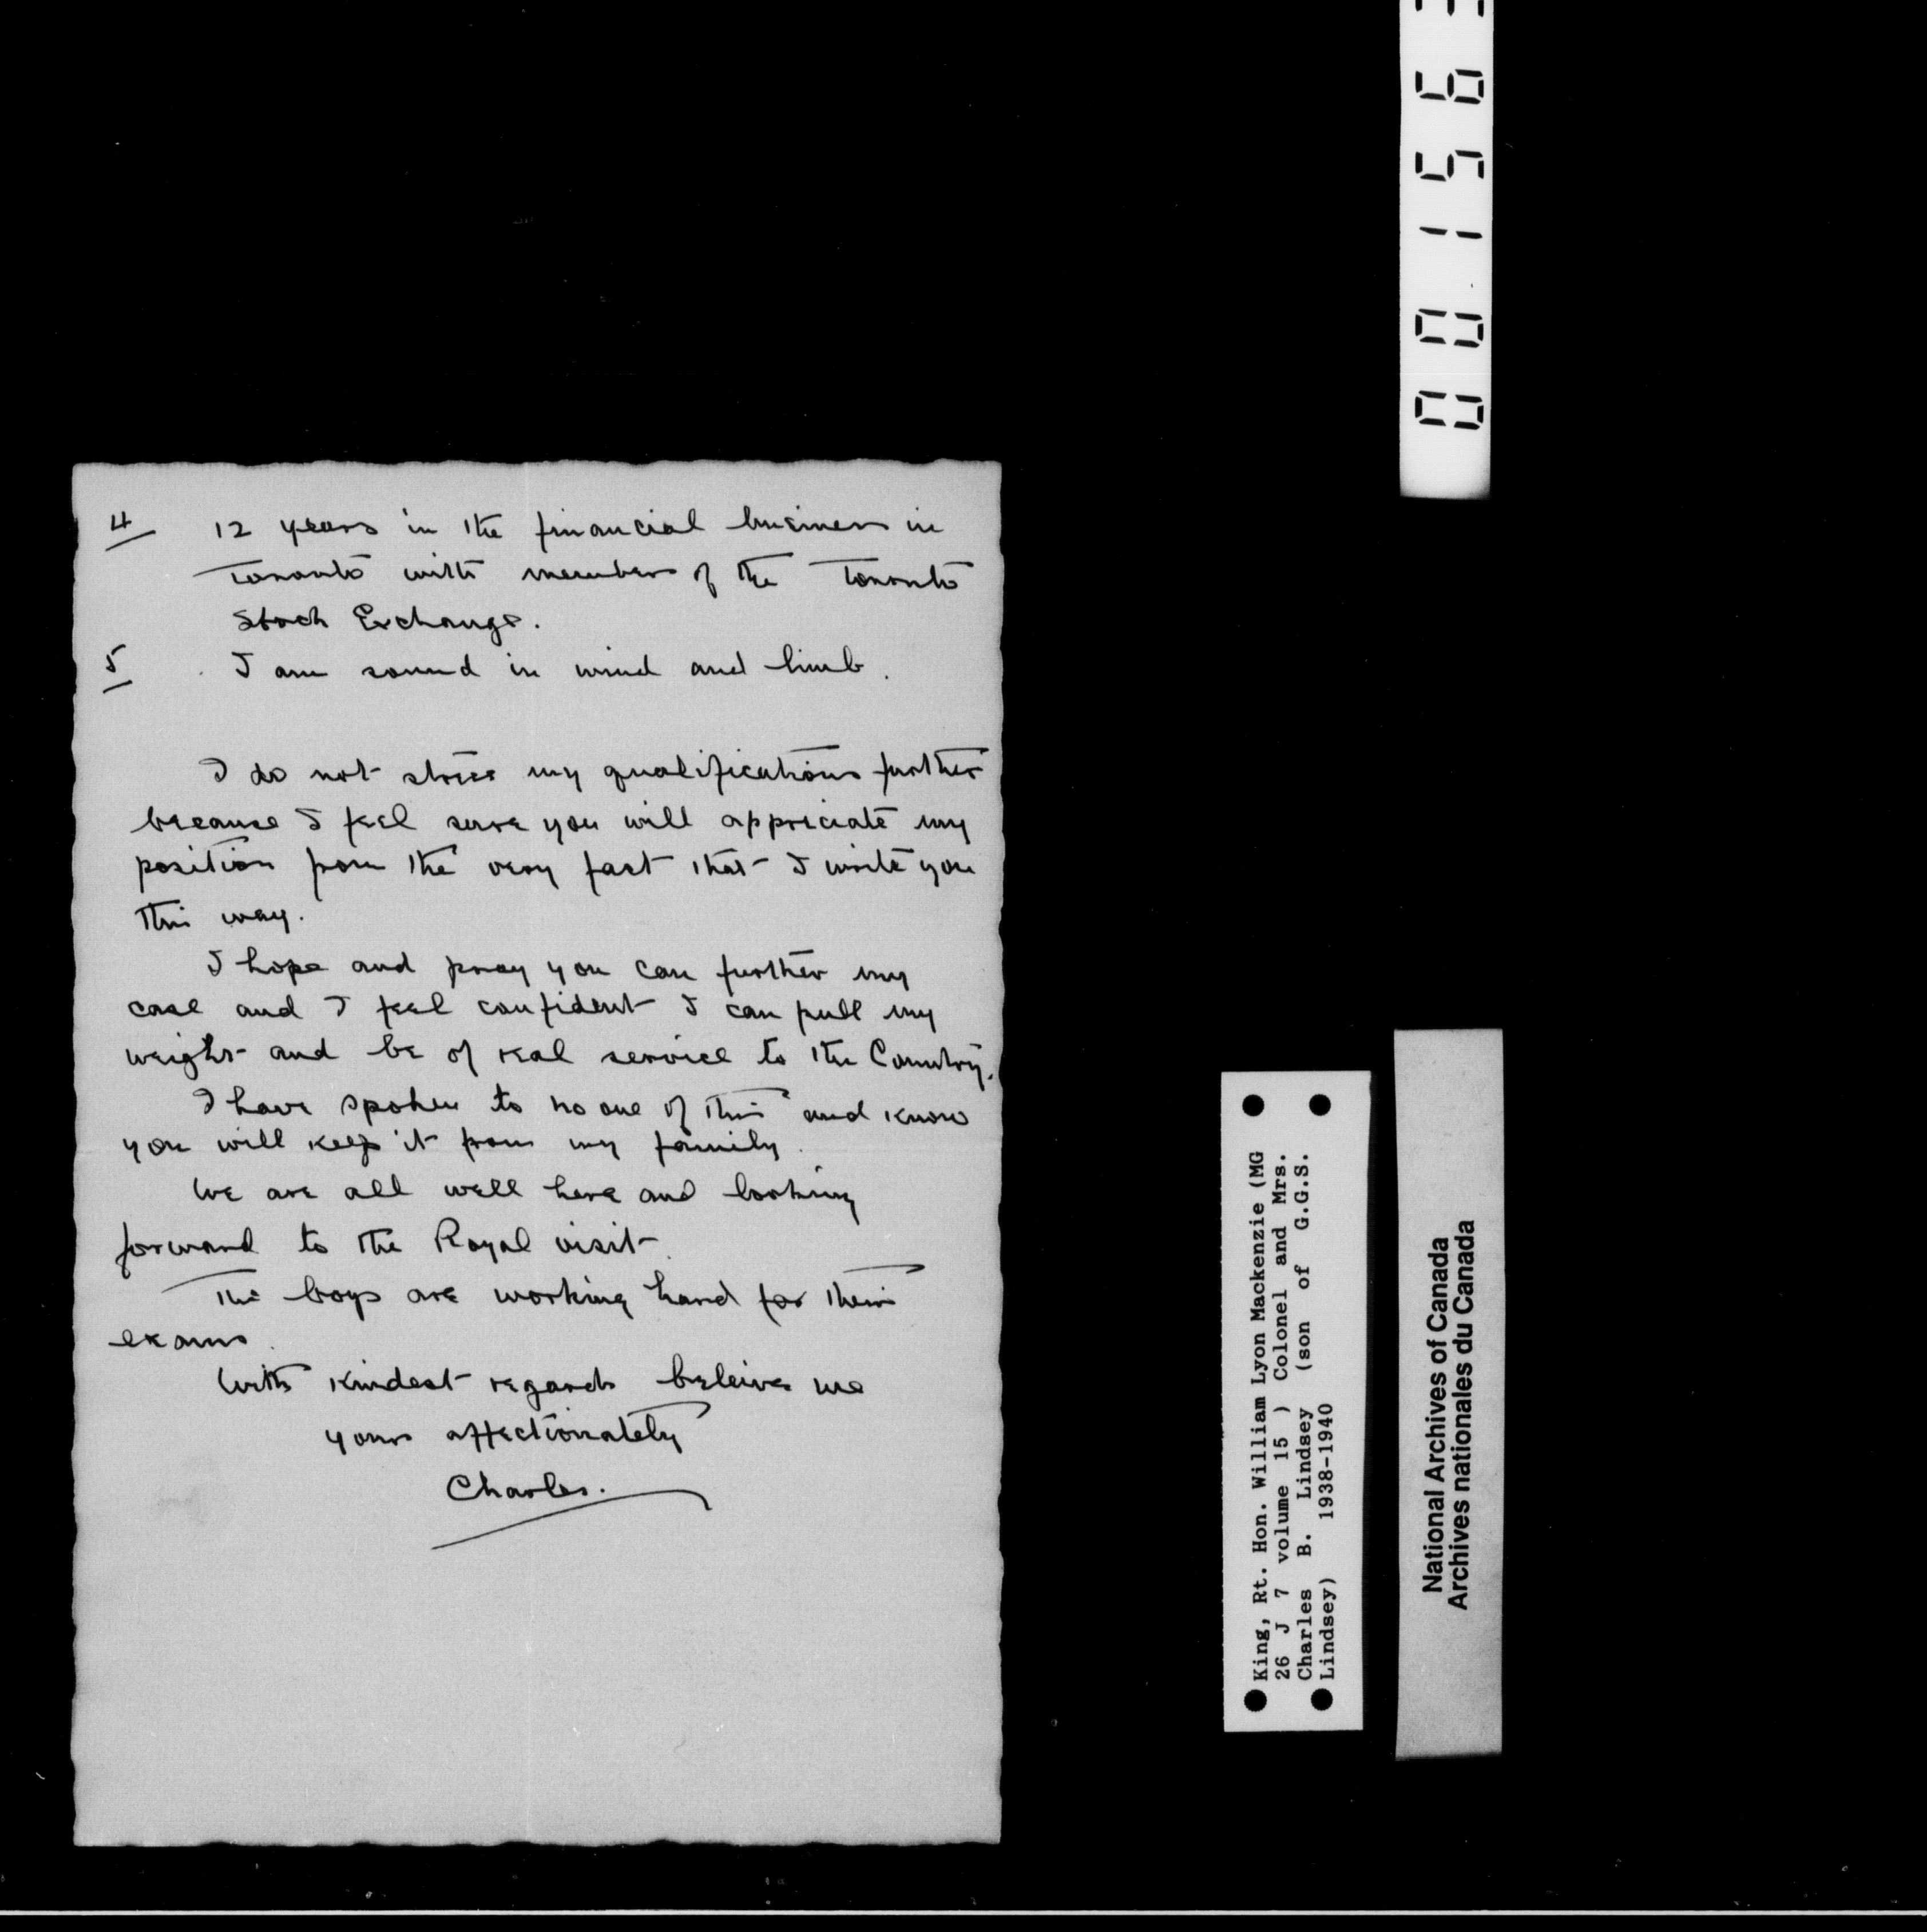 4 12 years in the financial business in
Toronto with members of the Toronto
Stock Exchange.
5 I am sound in wind and limb.
I do not stress my qualifications further
because I feel sure you will appreciate my
position from the very fact that I write you
this way.
I hope and pray you can further my
case and I feel confident I can pull my
weight and be of real service to the Country.
I have spoken to no one of this and know
you will keep it from my family.
We are all well here and looking
forward to the Royal visit.
The boys are working hard for their
exams.
With kindest regards beleive me
yours affectionately
Charles.
King, Rt. Hon. William Lyon Mackenzie (MG
26 J 7 volume 15 ) Colonel and Mrs.
Charles B. Lindsey (son of G.G.S.
Lindsey) 1938-1940
National Archives of Canada
Archives nationales du Canada
00156